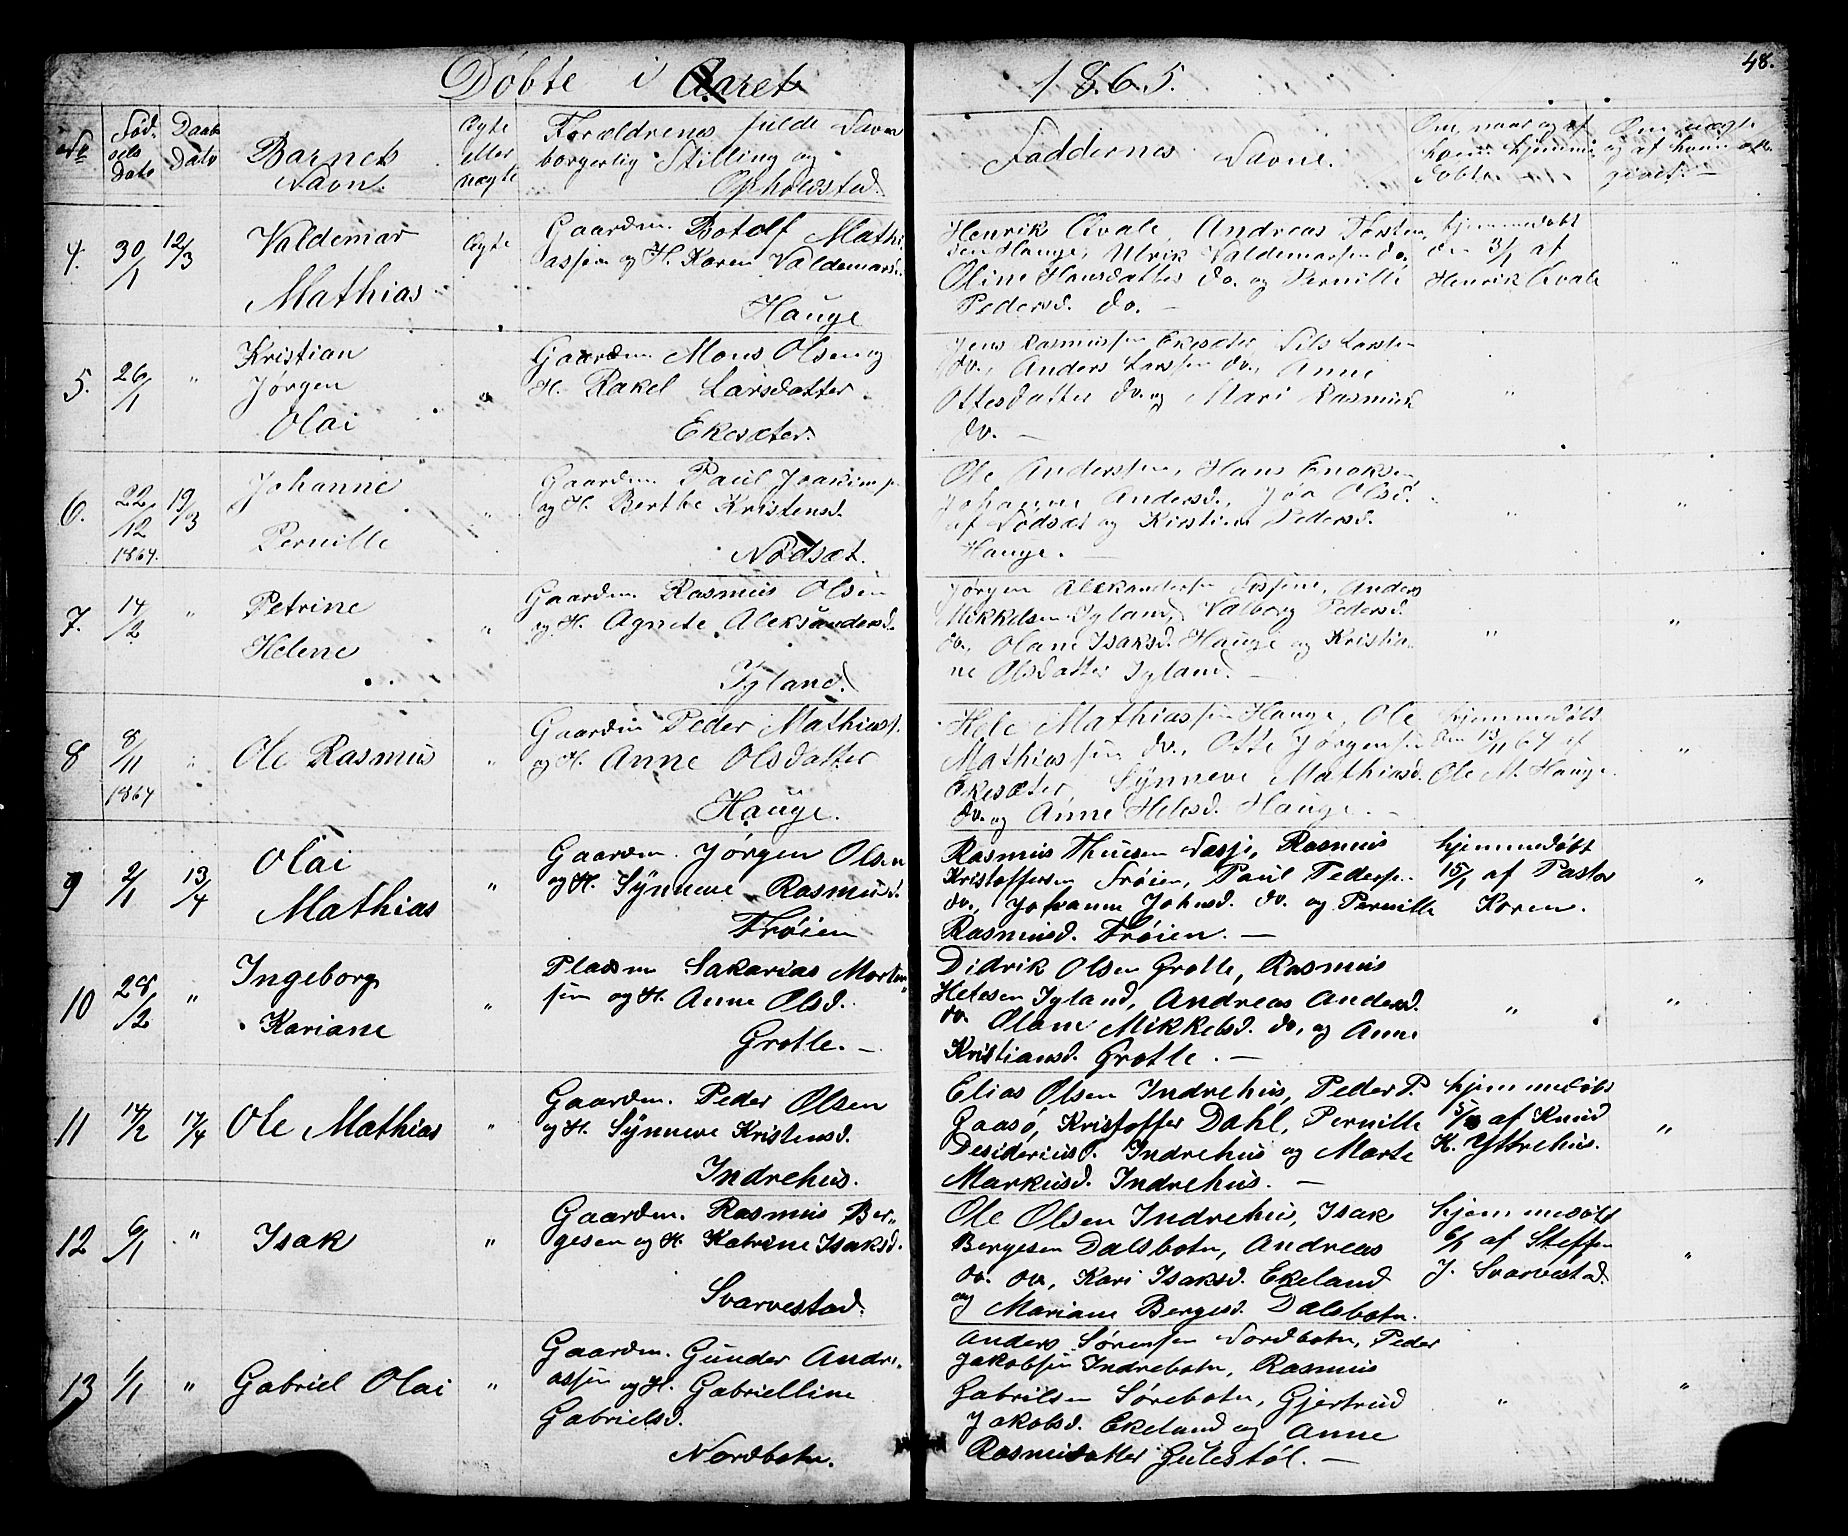 48.
Døbte i Aaret 1865.
No
Fødselsdato
Daabdato
Barnets Navn.
Ægte eller uægte
Forældrenes fulde Navn
borgerlig Stilling og
Opholdsted.
Faddernes Navne.
Om, naar og af
hvem hjemmedøbte
Om uægte
og af hvem
4. 30/1 12/3 Valdemar
Mathias
Ægte
Gaardm. Botolf Mathi
assen og H. Karen Valdemarsd.
Hauge
Henrik Qvale, Andreas Torsten
sen Hauge, Ulrik Valdemarsen do,
Oline Hansdatter do. og Pernille
Pedersd. do. —
hjemmedøbt
den 31/1 af
Henrik Qvale
"
5. 26/1 " Kristian
Jørgen
Olai
"
Gaardm. Mons Olsen og
H. Rakel Larsdatter
Ekesæter.
Jens Rasmussen Ekesæter, Nils Larsen
do., Anders Larssen do., Anne
Ottesdatter do. og Mari Rasmusd.
do. —
"
6. 22/12 1864. 19/3 Johanne
Pernille
"
Gaardm. Paul Joakimsen
og H. Berthe Kristensd.
Nødsæt.
Ole Anderssen, Hans Enoksen
Johanne Andersd., Olsd.
af Nødsæt og Kirstine Pedersd.
Hauge. —
" "
7. 14/2 " Petrine
Helene
"
Gaardm. Rasmus Olsen
og H. Agnete Aleksandersd.
Igland.
Jørgen Aleksandersen, Anders
Mikkelsen Igland, Valborg Pedersd.
do., Olane Isaksd. Hauge og Kristia-
ne Olsdatter Igland. —
" "
8 8/11 1864 " Ole Rasmus "
Gaardm Peder Mathiass.
og H. Anne Olsdatter
Hauge.
Hele Mathiassen Hauge, Ole
Mathiassen do., Otte Jørgensen
Ekesæter, Synneve Mathiasd.
do. og Anne Helesd. Hauge. —
hjemmedøbt
den 13/11 64 af
Ole M. Hauge.
"
9 2/1 13/4 Olai
Mathias
"
Gaardm. Jørgen Olsen
og H. Synneve Rasmusd.
Frøien
Rasmus Thuesen, Rasmus
Kristoffersen Frøien, Paul Peders.
do., Johanne Johnsd. do. og Pernille
Rasmusd. Frøien. —
hjemmedøbt
15/1 af Pastor
Koren.
"
10 28/12 " Ingeborg
Kariane
"
Pladsm Sakarias Morten
sen og H. Anne Olsd.
Grotle. —
Didrik Olsen Grotle, Rasmus
Helesen Igland, Andreas Andersd.
do. Olane Mikkelsd. do, og Anne
Kristiansd. Grotle. —
" "
11 14/2 17/4 Ole Mathias "
Gaardm. Peder Olsen
og H. Synneve Kristensd.
Indrehus.
Elias Olsen Indrehus, Peder P.
Gaasø, Kristoffer Dahl, Pernille
Desideriusd. Indrehus og Marte
Markusd. Indrehus. —
hjemmedøbt
af Knud
K. Yttrehus.
"
12 6/1 " Isak "
Gaardm. Rasmus Ber-
gesen og H. Katrine Isaksd.
Svarvestad.
Ole Olsen Indrehus, Isak
Bergesen Dalsbotn, Andreas
do. do., Kari Isaksd. Ekeland
og Mariane Bergesd. Dalsbotn.
hjemmedøbt
6/1 af Steffen
J. Svarvestad
"
13 1/1 " Gabriel Olai "
Gaardm. Gunder Andre-
assen og H. Gabrielline
Gabrielsd.
Nordbotn.
Anders Sørensen Nordbotn, Peder
Jakobsen Indrebotn, Rasmus
Gabrilsen Sørebotn, Gjertrud
Jakobsd. Ekeland og Anne
Rasmusdatter Gulestøl. —
" "